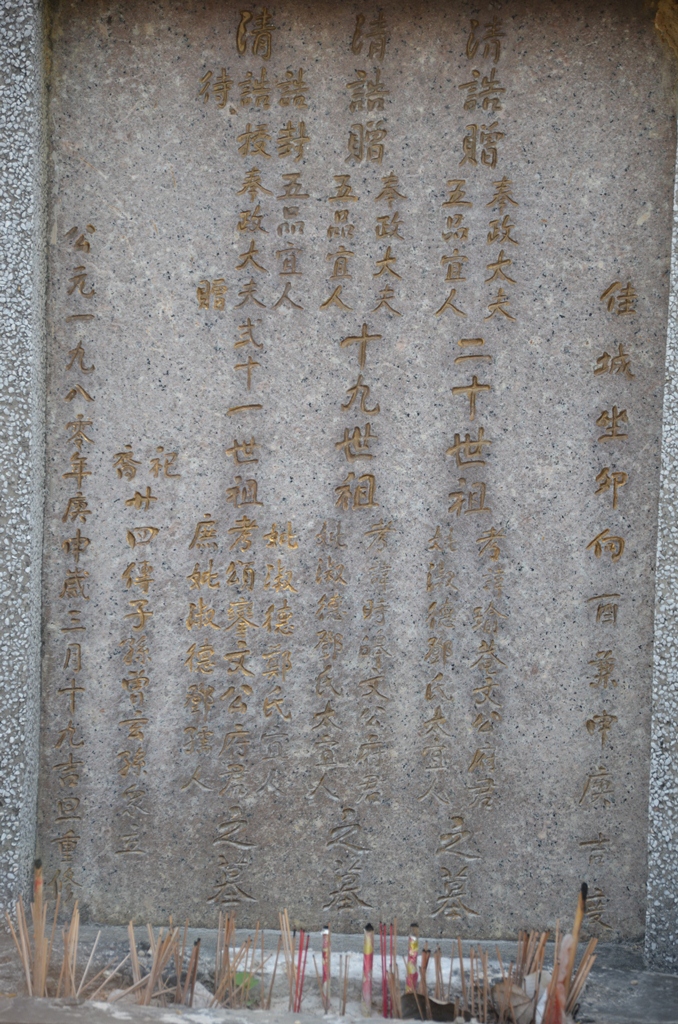 佳城坐卯向酉兼甲庚吉度
清誥贈
奉政大夫
五品宜人
二十世祖
考諱珍文公府君
妣淑德鄧氏太宜人
之墓
清誥贈
奉政大夫
五品宜人
十九世祖
考諱時文公府君
妣淑德鄧氏太宜人
之墓
清
誥封五品宜人
誥授奉政大夫
待贈
弍十一世祖
妣淑德鄭氏宜人
考頌文公府君
庶妣淑德鄧孺人
之墓
祀
裔
廿四傳子孫曾玄孫仝立
公元一九八零年庚申歲三月十九吉旦重修